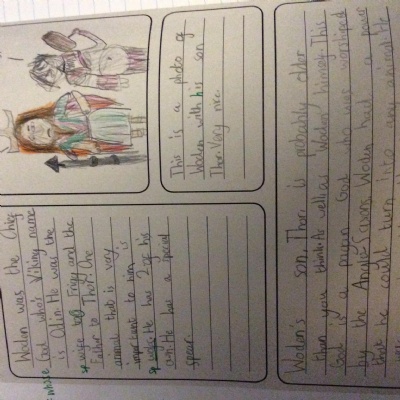 whose
Woden was the Chief
God who's Viking name
is Odin. He was the
wife to Frigg and the
Father to Thor. One
animal that is very
important to him is
He has 2 of his
He has a special
spear.
This is a photo of
Woden with his son
Thor. Very nice.
Woden's son, Thor is probably older
than you think. As well as Woden himself. This
God is a pagan God who was worshiped
by the Anglo-Saxons. Woden had a power
that he could turn into any animal. He